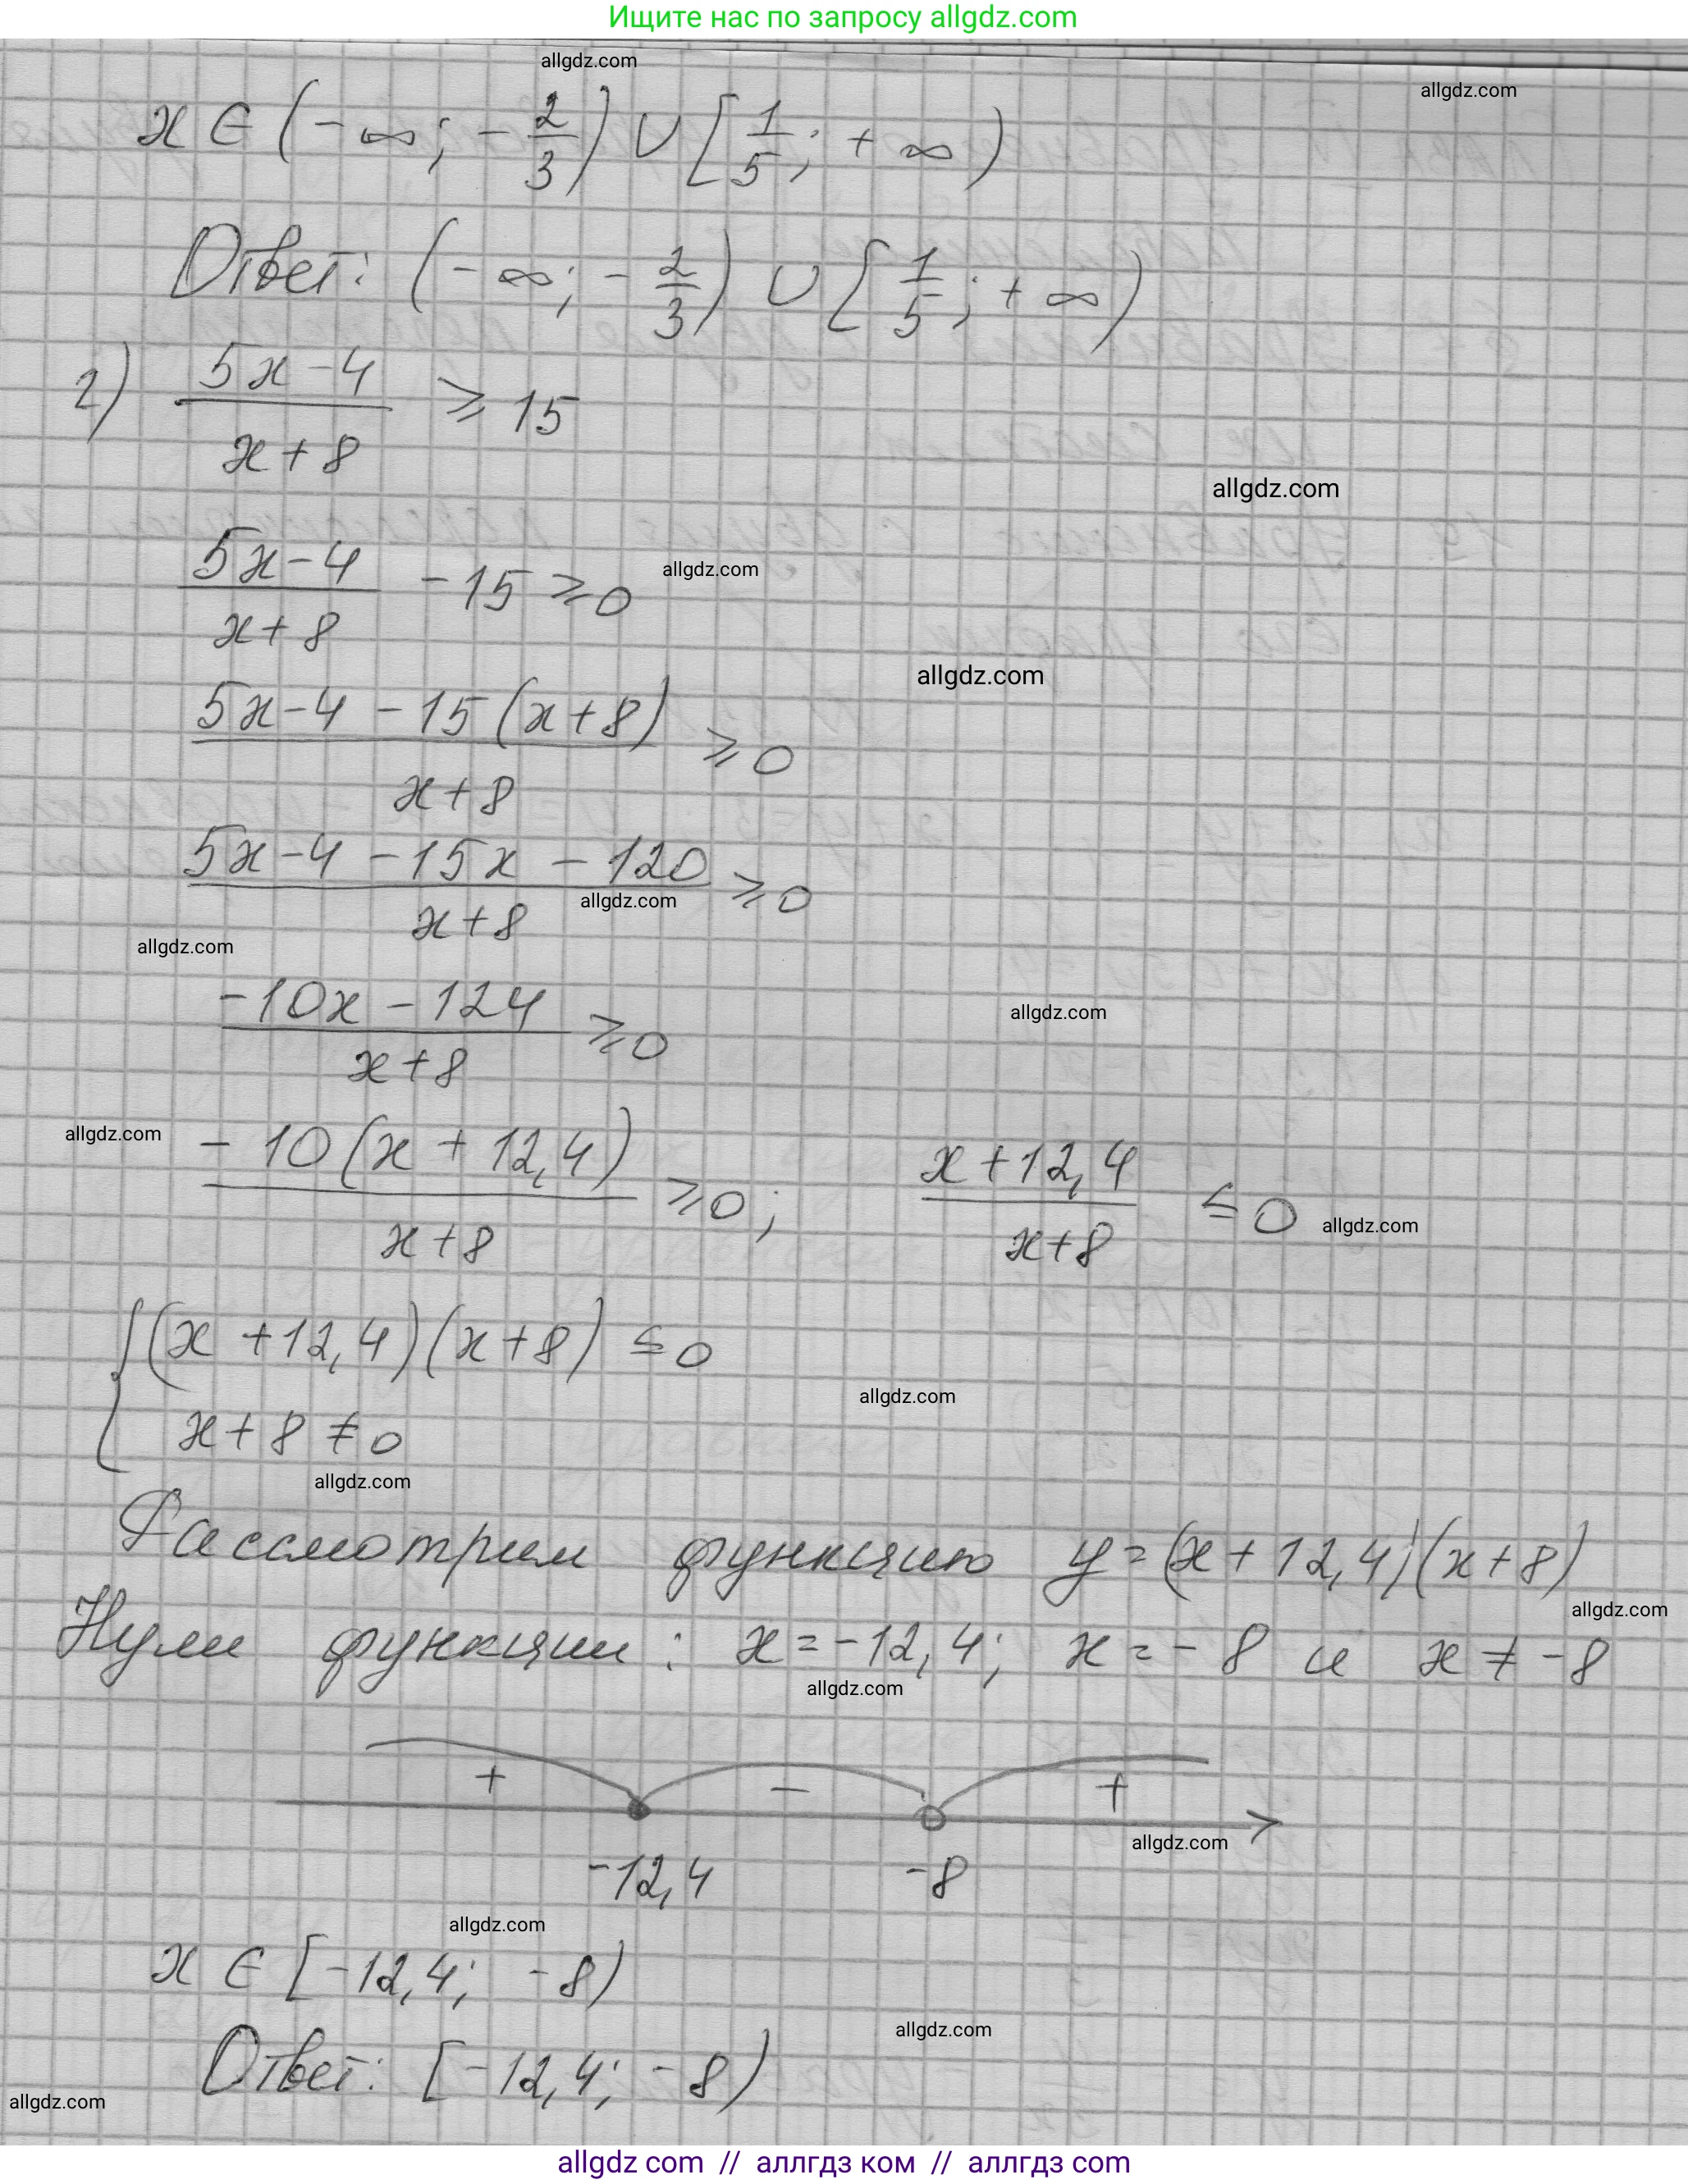 Ищите нас по запросу allgdz.com
allgdz.com
allgdz.com
x ∈ (-∞; -2/3) ∪ [1/5; +∞)
Ответ: (-∞; -2/3) ∪ [1/5; +∞)
2) (5x-4)/(x+8) ⩾ 15
allgdz.com
(5x-4)/(x+8) - 15 ⩾ 0
allgdz.com
allgdz.com
(5x-4-15(x+8))/(x+8) ⩾ 0
(5x-4-15x-120)/(x+8) ⩾ 0
allgdz.com
allgdz.com
(-10x-124)/(x+8) ⩾ 0
allgdz.com
allgdz.com
(-10(x+12,4))/(x+8) ⩾ 0; (x+12,4)/(x+8) ≤ 0
allgdz.com
{(x+12,4)(x+8) ≤ 0
x+8 ≠ 0
allgdz.com
allgdz.com
Рассмотрим функцию y=(x+12,4)(x+8)
allgdz.com
Нули функции: x=-12,4; x=-8 и x ≠ -8
allgdz.com
+ - +
allgdz.com
-12,4 -8
allgdz.com
x ∈ [-12,4; -8)
allgdz.com
Ответ: [-12,4; -8)
allgdz.com
allgdz com // аллгдз ком // аллгдз com